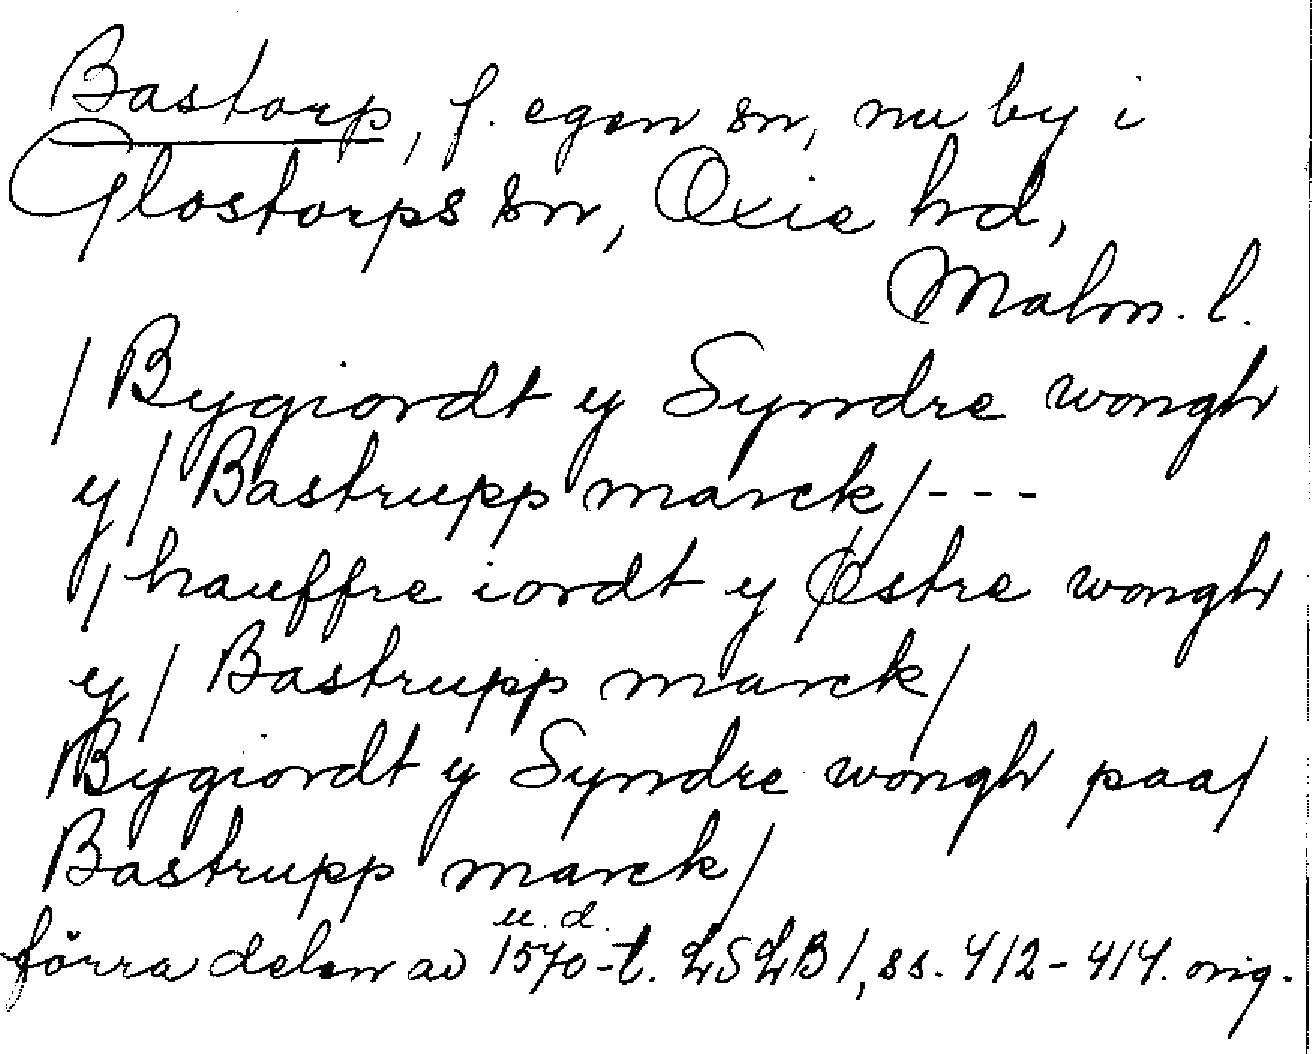 Bastorp, f. egen sn, nu by i
Glostorps sn, Oxie hd,
Malm. l.
/ Bygiordt y Syndre wongh
y / Bastrupp marck / - - -
/ hauffre iordt y Østre wongh
y / Bastrupp marck /
Bygiordt y Syndre wongh paa /
Bastrupp marck /
u. d.
förra delen av 1570-t. LSLB 1, ss. 412-414. orig.